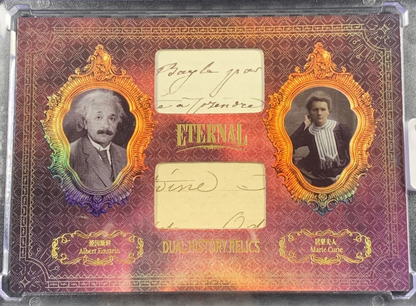 Bayle par
e à prendre
ETERNAL
vine
DUAL HISTORY RELICS
爱因斯坦
Albert Einstein
居里夫人
Marie Curie